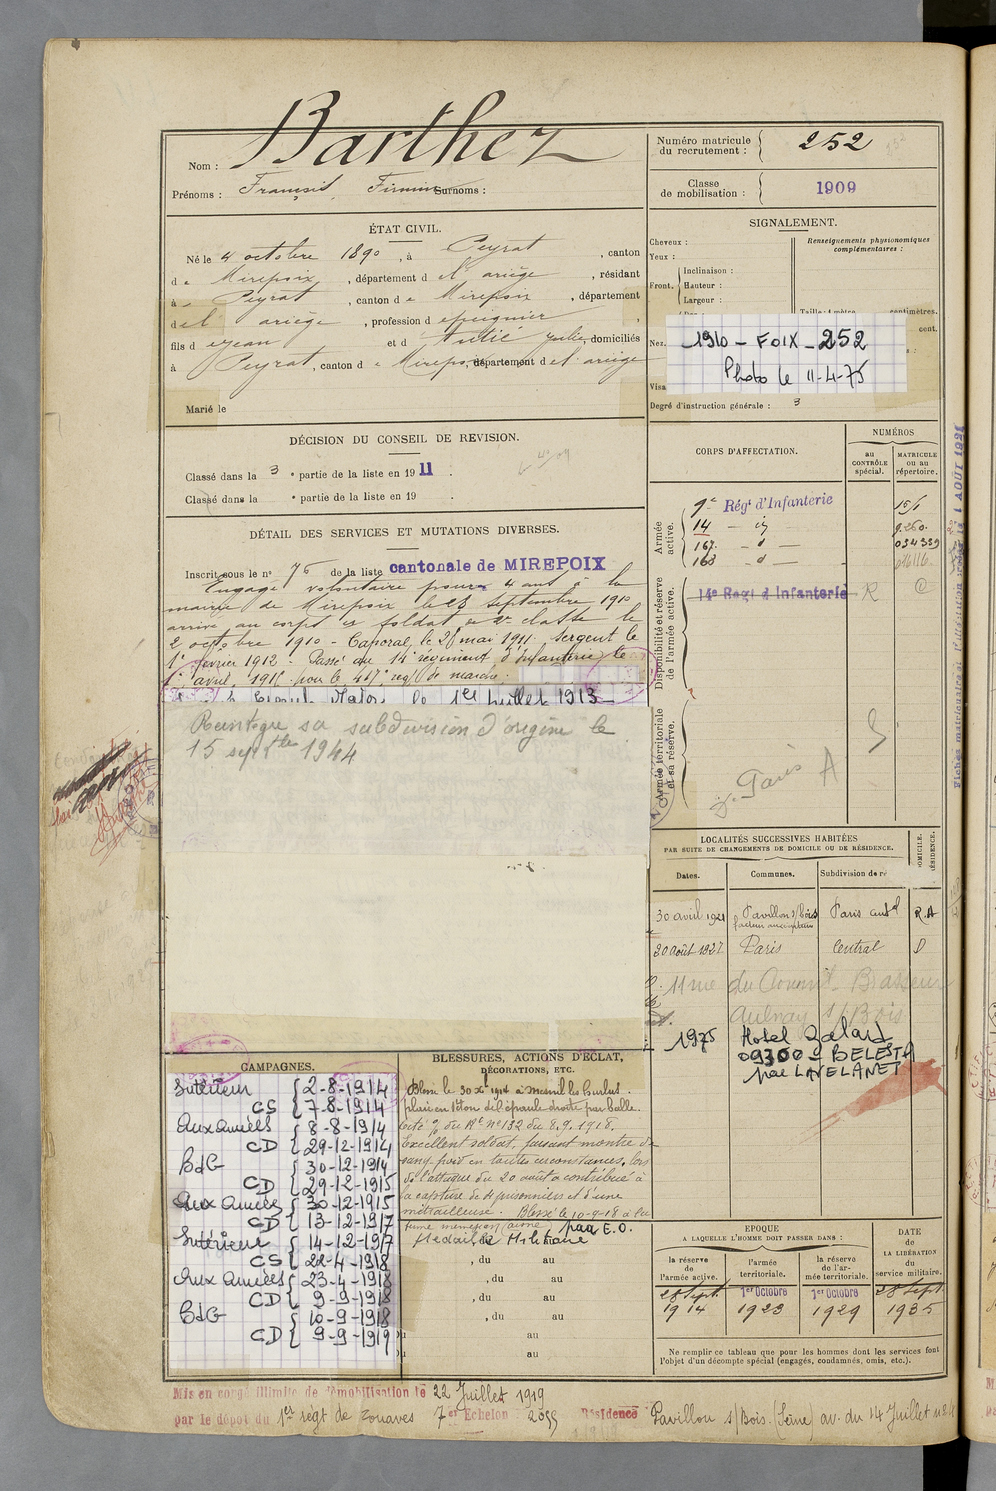 Barthez
Nom :
Prénoms : François Firmin Surnoms :
Numéro matricule
du recrutement :
252
Classe
de mobilisation :
1909
ÉTAT CIVIL.
Né le 4 octobre 1890, à Peyrat, canton
de Mirepoix, département de l'ariège, résidant
à Peyrat, canton de Mirepoix, département
de l'ariège, profession de peignier,
fils de Jean et de Julie, domiciliés
à Peyrat, canton de Mirepoix, département de l'ariège
Marié le
SIGNALEMENT.
Cheveux :
Yeux :
Front.
Inclinaison :
Hauteur :
Largeur :
Renseignements physionomiques
complémentaires :
Taille : 1 mètre centimètres.
cent.
Nez.
1910 - FOIX - 252
Photo le 11-4-75
Visa
Degré d'instruction générale : 3
DÉCISION DU CONSEIL DE REVISION.
Classé dans la 3e partie de la liste en 1911.
Classé dans la e partie de la liste en 19 .
DÉTAIL DES SERVICES ET MUTATIONS DIVERSES.
Inscrit sous le no 76 de la liste cantonale de MIREPOIX
Engagé volontaire pour 4 ans à la
mairie de Mirepoix le 28 septembre 1910
arrivé au corps et soldat de 2e classe le
2 octobre 1910 - Caporal le 28 mai 1911. Sergent le
1er février 1912. Passé du 14e régiment d'Infanterie le
avril 1915 pour le 167e régt de marche.
le 1er juillet 1913
Réintègre sa subdivision d'origine le
15 septbre 1944
CORPS D'AFFECTATION.
NUMÉROS
au
CONTRÔLE
spécial.
MATRICULE
ou au
répertoire.
Armée
active.
9e Régt d'Infanterie
14 - id
167. - d -
168 - d -
9.260.
034359
Disponibilité et réserve
de l'armée active.
14e Regt d Infanterie
R
Armée territoriale
et sa réserve.
Paris A
LOCALITÉS SUCCESSIVES HABITÉES
PAR SUITE DE CHANGEMENTS DE DOMICILE OU DE RÉSIDENCE.
Dates.
Communes.
Subdivision de ré
30 avril 1921 Pavillons s/Bois Paris R.A
20 août 1927 Paris Central D
11 rue du Command. Brasseur
Aulnay s/Bois
1975 Hotel Galard
09300 BELESTA
par LAVELANET
CAMPAGNES.
Intérieur { 2-8-1914
CS { 7-8-1914
Aux armées { 8-8-1914
CD { 29-12-1914
BdG { 30-12-1914
CD { 29-12-1915
Aux armées { 30-12-1915
CD { 13-12-1917
Intérieur { 14-12-1917
CS { 22-4-1918
Aux armées { 23-4-1918
CD { 9-9-1918
BdG { 10-9-1918
CD { 9-9-1919
BLESSURES, ACTIONS D'ÉCLAT,
DÉCORATIONS, ETC.
Blessé le 30 Xbre 1914 à Mesnil les Hurlus
plaie en séton de l'épaule droite par balle.
Cité % du Rt no 132 du 8.9.1918.
Excellent soldat, faisant montre de
sang-froid en toutes circonstances, lors
de l'attaque du 20 août a contribué à
la capture de 4 prisonniers et d'une
mitrailleuse. Blessé le 10-9-18 à la
(aisne) par E.O.
Médaille Militaire
, du au
, du au
, du au
, du au
au
au
EPOQUE
A LAQUELLE L'HOMME DOIT PASSER DANS :
la réserve
de
l'armée active.
l'armée
territoriale.
la réserve
de l'ar-
mée territoriale.
DATE
de
LA LIBÉRATION
du
service militaire.
28 Sept. 1er Octobre 1er Octobre 28 Sept.
1914 1923 1929 1935
Ne remplir ce tableau que pour les hommes dont les services font
l'objet d'un décompte spécial (engagés, condamnés, omis, etc.).
Mis en congé illimité de démobilisation le 22 Juillet 1919
par le dépôt du 1er régt de zouaves 7e Echelon : 2099 Résidence Pavillon s/Bois (Seine) av. du 14 Juillet